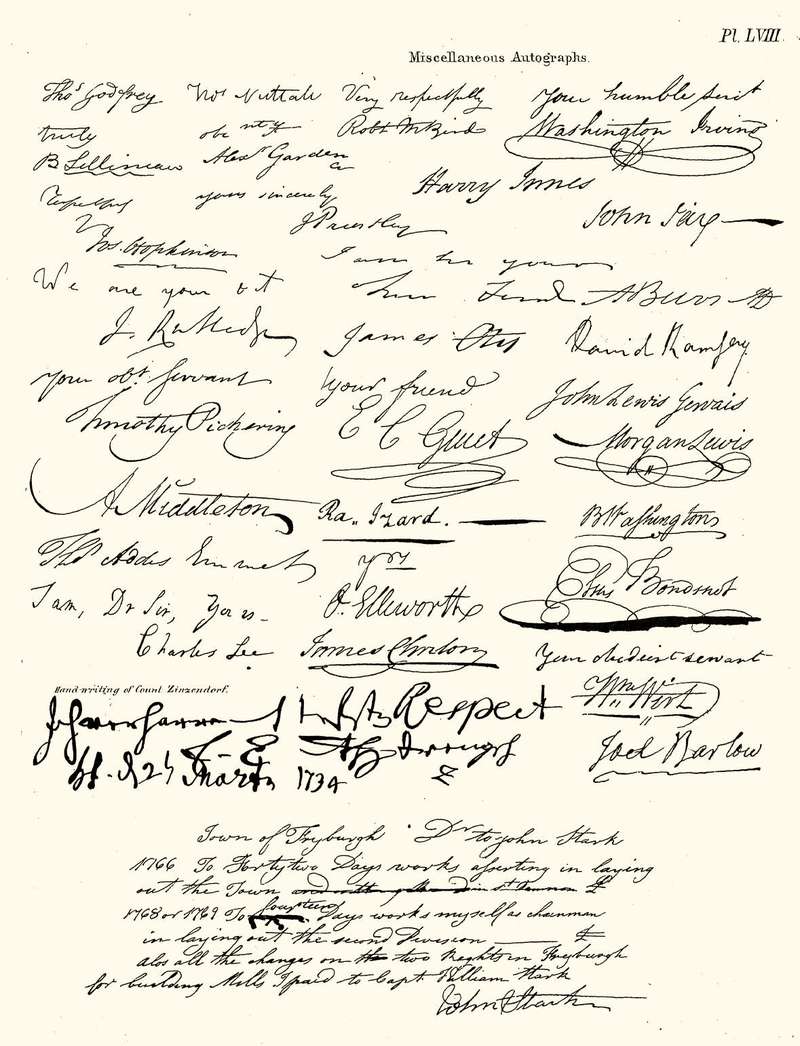 Pl. LVIII
Miscellaneous Autographs.
Thos Godfrey
Thos Nuttall
Very respectfully
Your humble Servt
truly
Robt M Bird
Washington Irving
B Silliman
Alexr Garden
Harry Innes
yours sincerely
John Jay
J Priestley
Jos. Hopkinson
I am
yours
We are your
A Burr
J. Rutledge
James Otis
David Ramsey
your obt Servant
your friend
John Lewis Gervais
Timothy Pickering
E C Genet
Morgan Lewis
A Middleton
Ra. Izard.
B Washington
Thos Addis Emmet
yrs
Elias Boudinot
I am, Dr Sir, Yours
O. Ellsworth
Charles Lee
James Clinton
Your obedient servant
Hand-writing of Count Zinzendorf.
Wm Wirt
Respect
Joel Barlow
Märtz 1734
Town of Fryburgh Dr to John Stark
1766 To Fortytwo Days works asserting in laying
out the Town
1768 or 1769 To fourteen Days works myself as chainman
in laying out the second Division £
alos all the charges on two Neghts in Fryburgh
for building Mills I paid to Capt William Stark
John Stark